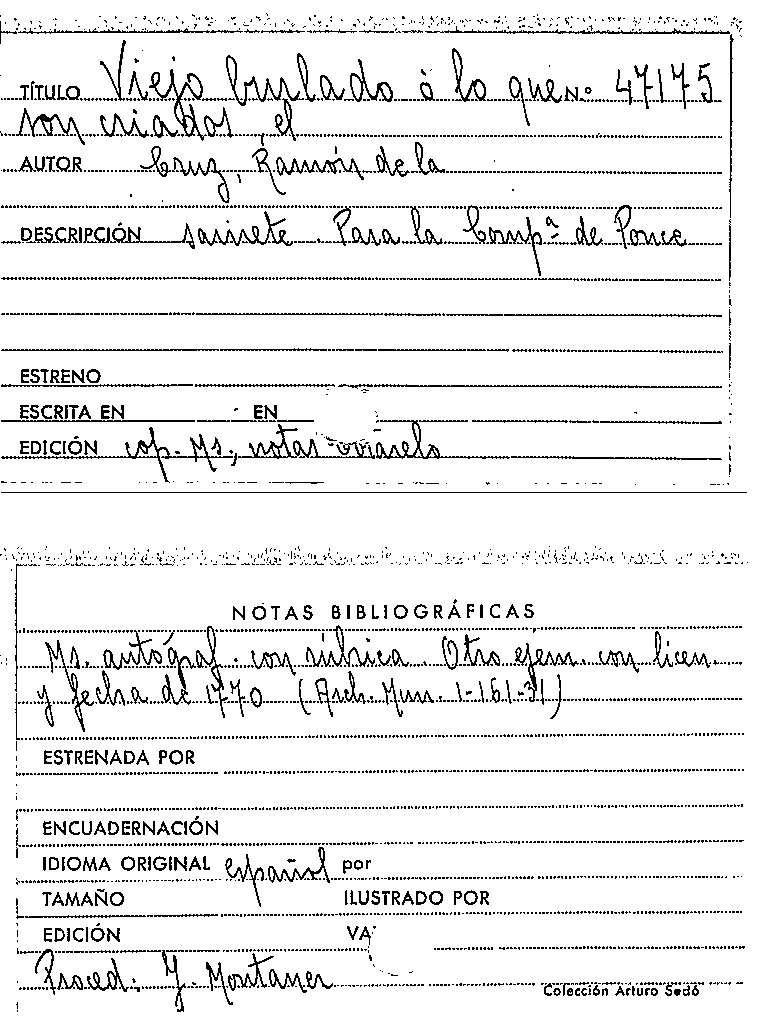 TÍTULO Viejo burlado ó lo que N.º 47175
son criados, el
AUTOR Cruz, Ramón de la
DESCRIPCIÓN sainete. Para la Comp.ª de Ponce
ESTRENO
ESCRITA EN EN
EDICIÓN cop. Ms., notas
NOTAS BIBLIOGRÁFICAS
Ms. autógraf. con rúbrica. Otro ejem. con licen.
y fecha de 1770 (Arch. Mun. 1-161-31)
ESTRENADA POR
ENCUADERNACIÓN
IDIOMA ORIGINAL español por
TAMAÑO ILUSTRADO POR
EDICIÓN VA
Proced: J. Montaner
Colección Arturo Sedó